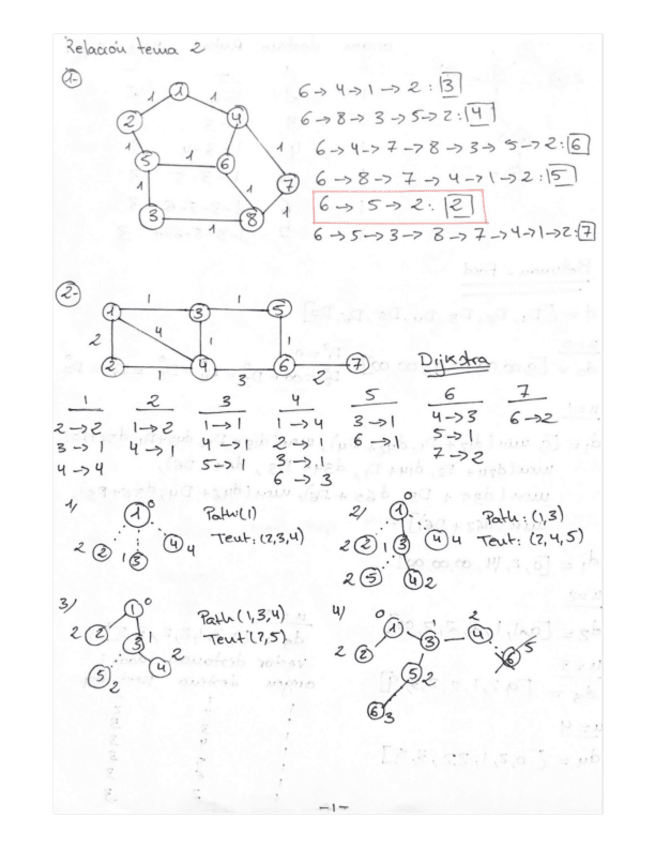 Relación tema 2
1-
1
1 1
2 4
1 1
5 1 6
7
1 1
3 1 8 1
6 → 4 → 1 → 2 : 3
6 → 8 → 3 → 5 → 2 : 4
6 → 4 → 7 → 8 → 3 → 5 → 2 : 6
6 → 8 → 7 → 4 → 1 → 2 : 5
6 → 5 → 2 : 2
6 → 5 → 3 → 8 → 7 → 4 → 1 → 2 : 7
2-
1 1 3 1 5
2 4 1 1
2 1 4 3 6 2 7
Dijkstra
1 2 3 4 5 6 7
2 → 2 1 → 2 1 → 1 1 → 4 3 → 1 4 → 3 6 → 2
3 → 1 4 → 1 4 → 1 2 → 1 6 → 1 5 → 1
4 → 4 5 → 1 3 → 1 7 → 2
6 → 3
1)
1 0
2 2 1 3 4 4
Path: (1)
Tent: (2,3,4)
2)
1 0
2 2 1 3 4 4
2 5 4 2
Path: (1,3)
Tent: (2,4,5)
3)
1 0
2 2 3 1
5 2 4 2
Path (1,3,4)
Tent: (2,5)
4)
0 1 3 4 2
2 2 6 5
5 2
6 3
-1-